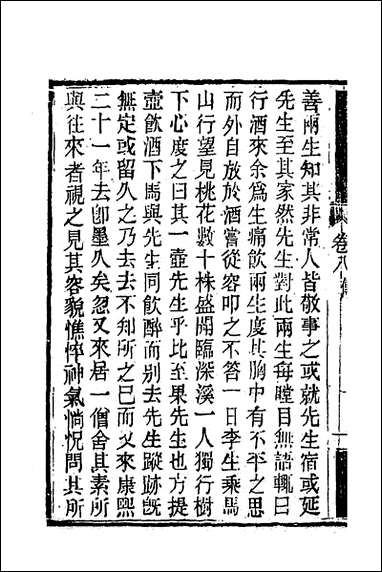 善兩生知其非常人皆敬事之或就先生宿或延
先生至其家然先生對此兩生每瞠目無語輒曰
行酒來余爲生痛飲兩生度其胸中有不平之思
而外自放於酒嘗從容叩之不答一日李生乘馬
山行望見桃花數十株盛開臨深溪一人獨行樹
下心度之曰其一壺先生乎比至果先生也方提
壺飲酒下馬與先生同飲醉而别去先生蹤跡旣
無定或留久之乃去去不知所之已而又來康熙
二十一年去卽墨久矣忽又來居一僧舍其素所
與往來者視之見其容貌憔悴神氣惝怳問其所
卷八